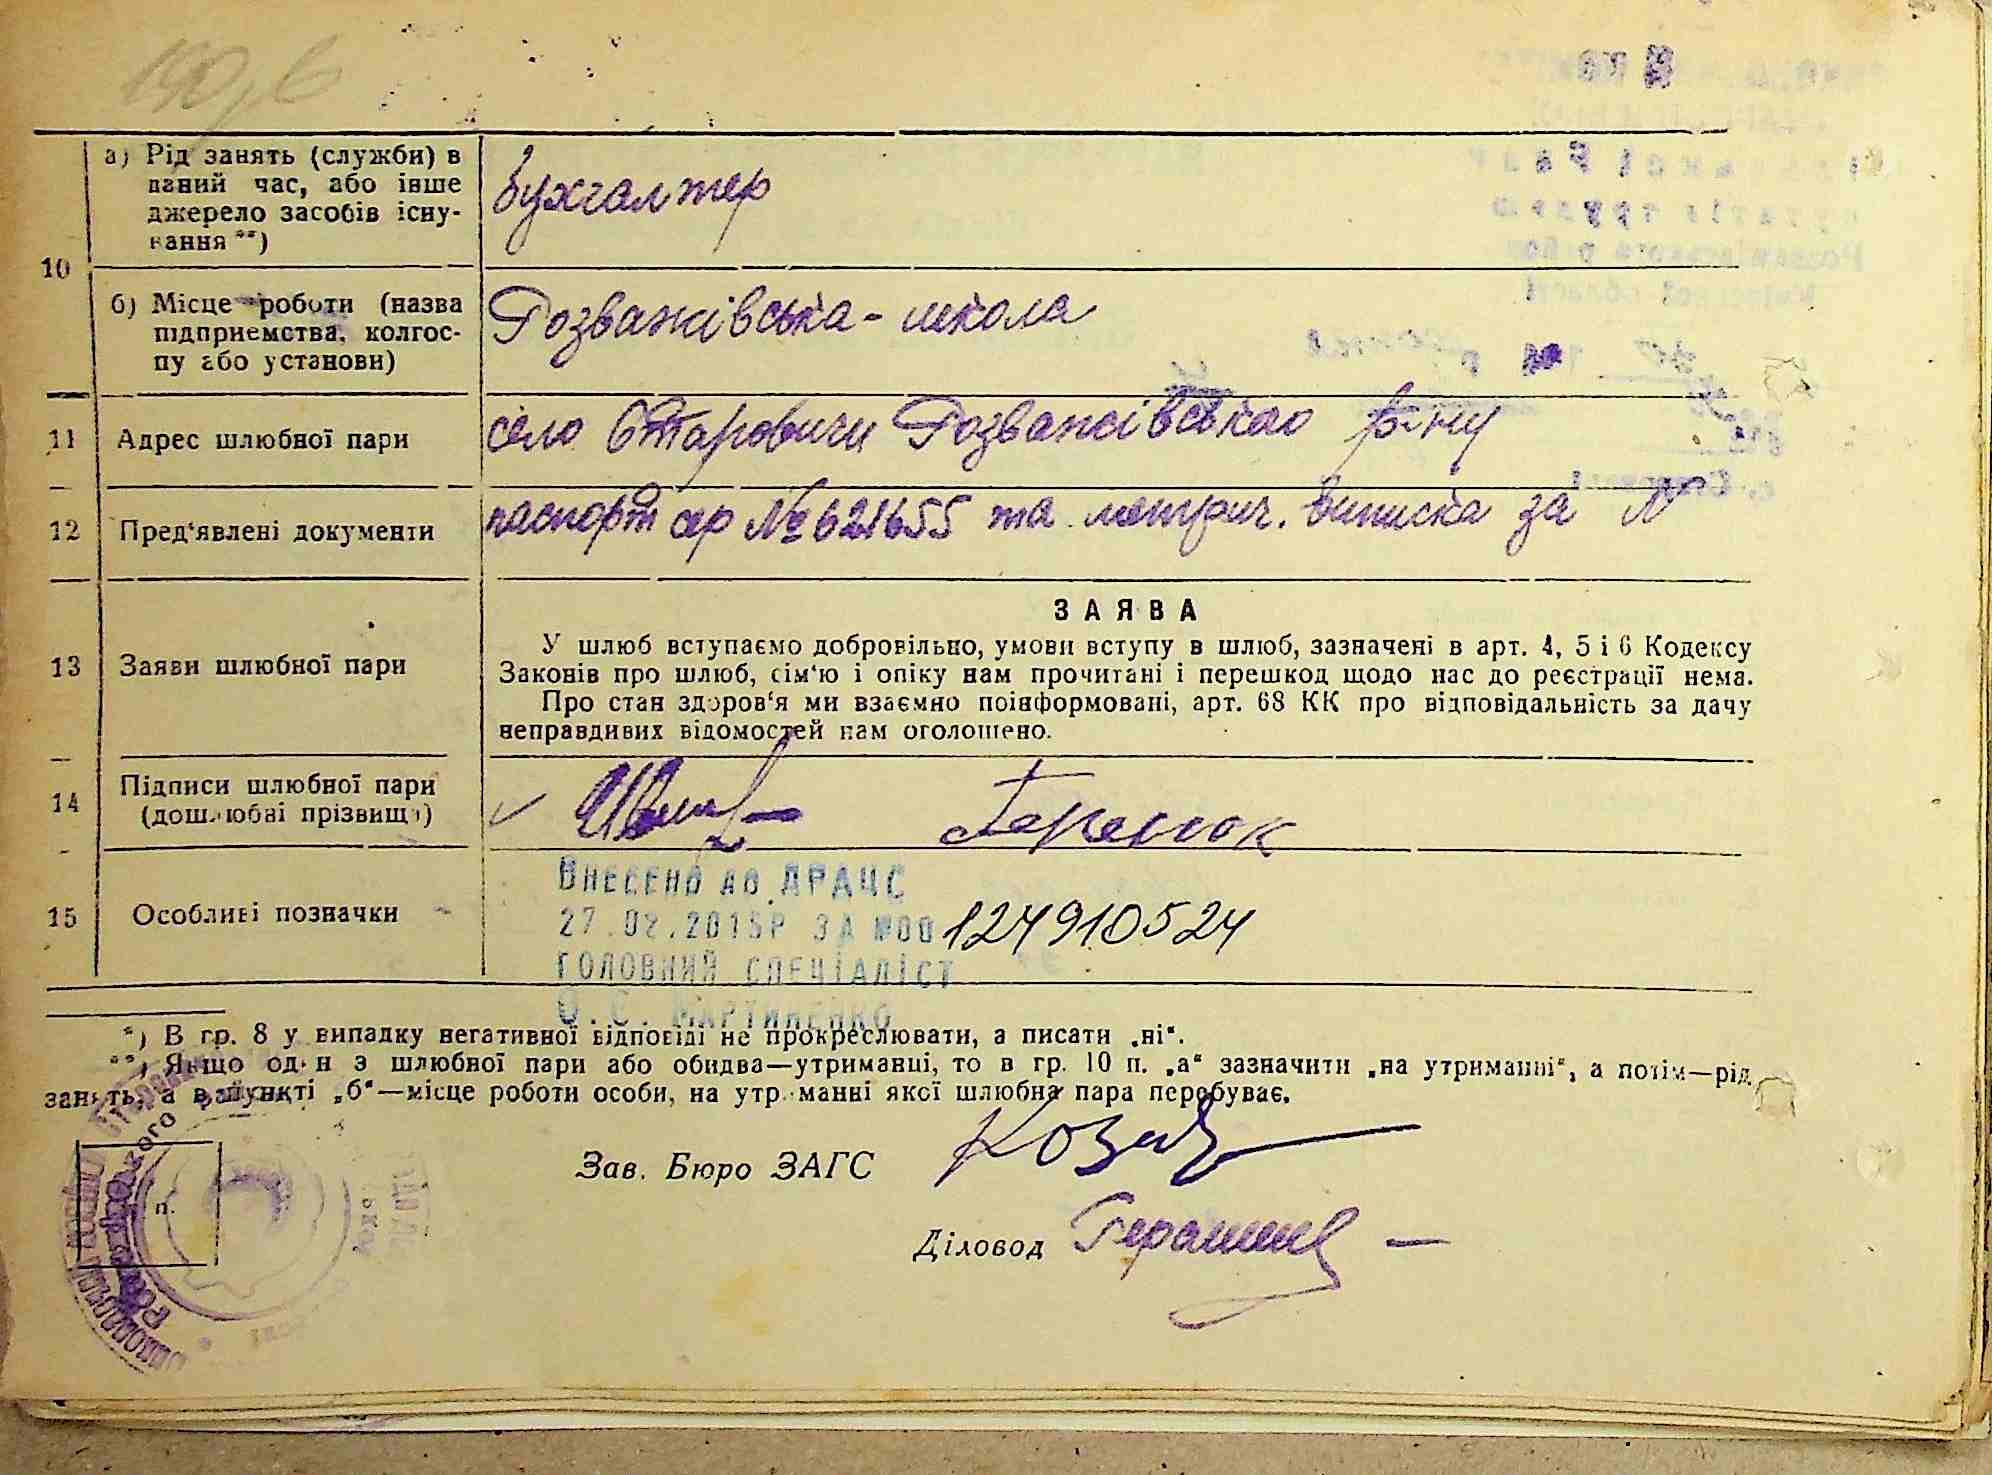 190, б
10
а) Рід занять (служби) в
даний час, або інше
джерело засобів існу-
вання **)
бухгалтер
б) Місце роботи (назва
підприємства, колгос-
пу або установи)
Розважівська - школа
11
Адрес шлюбної пари
село Старовичи Розважівськао р-ну
12
Пред'явлені документи
паспорт сер № 621655 та метрич. виписка за №
13
Заяви шлюбної пари
ЗАЯВА
У шлюб вступаємо добровільно, умови вступу в шлюб, зазначені в арт. 4, 5 і 6 Кодексу
Законів про шлюб, сім'ю і опіку нам прочитані і перешкод щодо нас до реєстрації нема.
Про стан здоров'я ми взаємно поінформовані, арт. 68 КК про відповідальність за дачу
неправдивих відомостей нам оголошено.
14
Підписи шлюбної пари
(дошлюбні прізвища)
15
Особливі позначки
ВНЕСЕНО ДО ДРАЦС
27.02.2015Р ЗА №00124910524
ГОЛОВНИЙ СПЕЦІАЛІСТ
О.С. МАРТИНЕНКО
*) В гр. 8 у випадку негативної відповіді не прокреслювати, а писати „ні“.
**) Якщо один з шлюбної пари або обидва—утриманці, то в гр. 10 п. „а“ зазначити „на утриманні“, а потім—рід
занять, а в пункті „б“—місце роботи особи, на утриманні якої шлюбна пара перебуває.
Зав. Бюро ЗАГС
Діловод
п.